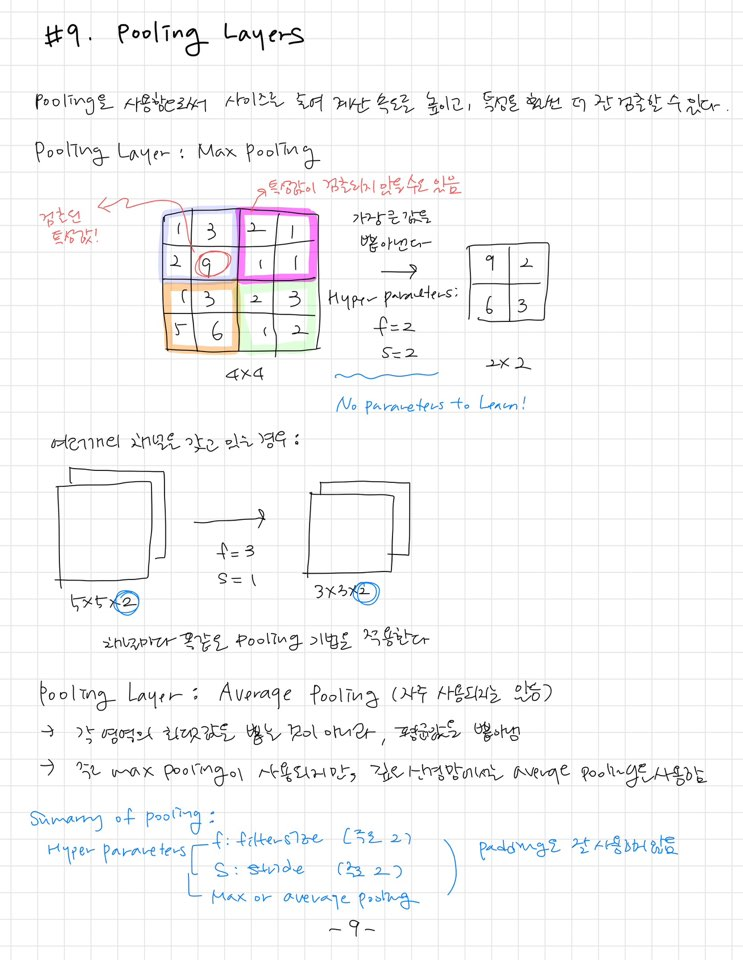 #9. Pooling Layers
Pooling을 사용함으로써 사이즈를 줄여 계산 속도를 높이고, 특성을 훨씬 더 잘 검출할 수 있다.
Pooling Layer : Max Pooling
특성값이 검출되지 않을 수도 있음
검출된
특성값!
1 3 2 1
2 9 1 1
1 3 2 3
5 6 1 2
4x4
가장 큰 값을
뽑아낸다
Hyper parameters:
f=2
s=2
No parameters to Learn!
9 2
6 3
2x2
여러개의 채널을 갖고 있는 경우:
f=3
s=1
5x5x2
3x3x2
채널마다 똑같은 Pooling 기법을 적용한다
Pooling Layer : Average Pooling (자주 사용되지는 않음)
→ 각 영역의 최댓값을 뽑는 것이 아니라, 평균값을 뽑아냄
→ 주로 max pooling이 사용되지만, 깊은 신경망에서는 average pooling을 사용함
Summary of pooling:
Hyper parameters
f: filtersize (주로 2)
S: stride (주로 2)
Max or average pooling
padding은 잘 사용하지 않음
- 9 -